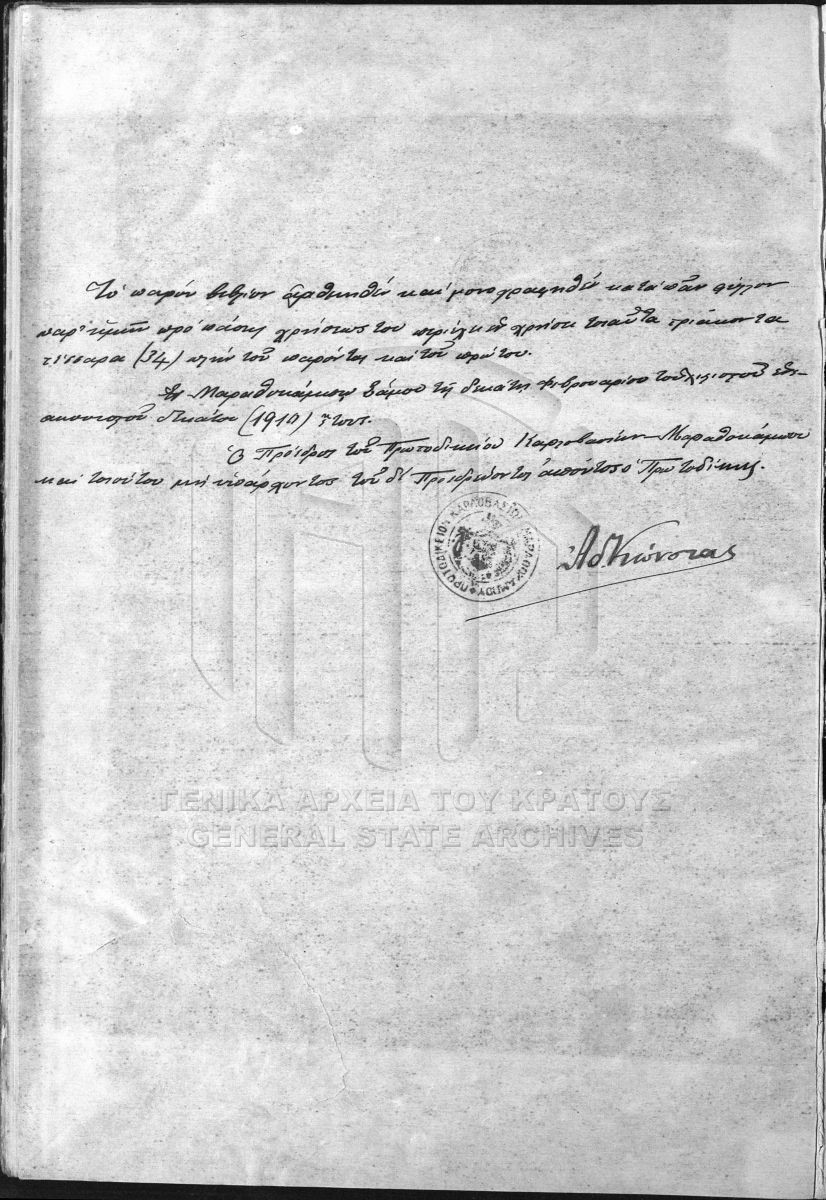 Τὸ παρὸν βιβλίον ἀριθμηθὲν καὶ μονογραφηθὲν κατὰ πᾶν φύλλον
παρ' ἡμῶν πρὸ πάσης χρήσεως του περιέχει ἐν χρήσει τοιαῦτα τριάκοντα
τέσσαρα (34) πλὴν τοῦ παρόντος καὶ τοῦ πρώτου.
Ἐν Μαραθοκάμπῳ Σάμου τῇ δεκάτῃ Φεβρουαρίου τοῦ χιλιοστοῦ ἐννε-
ακοσιοστοῦ δεκάτου (1910) ἔτους.
Ὁ Πρόεδρος τοῦ Πρωτοδικείου Καρλοβασίων-Μαραθοκάμπου
καὶ τοιούτου μὴ ὑπάρχοντος τοῦ δὲ Προεδρεύοντος ἀπόντος ὁ Πρωτοδίκης.
ΠΡΩΤΟΔΙΚΕΙΟΝ ΚΑΡΛΟΒΑΣΙΟΥ ΜΑΡΑΘΟΚΑΜΠΟΥ
ΓΕΝΙΚΑ ΑΡΧΕΙΑ ΤΟΥ ΚΡΑΤΟΥΣ
GENERAL STATE ARCHIVES